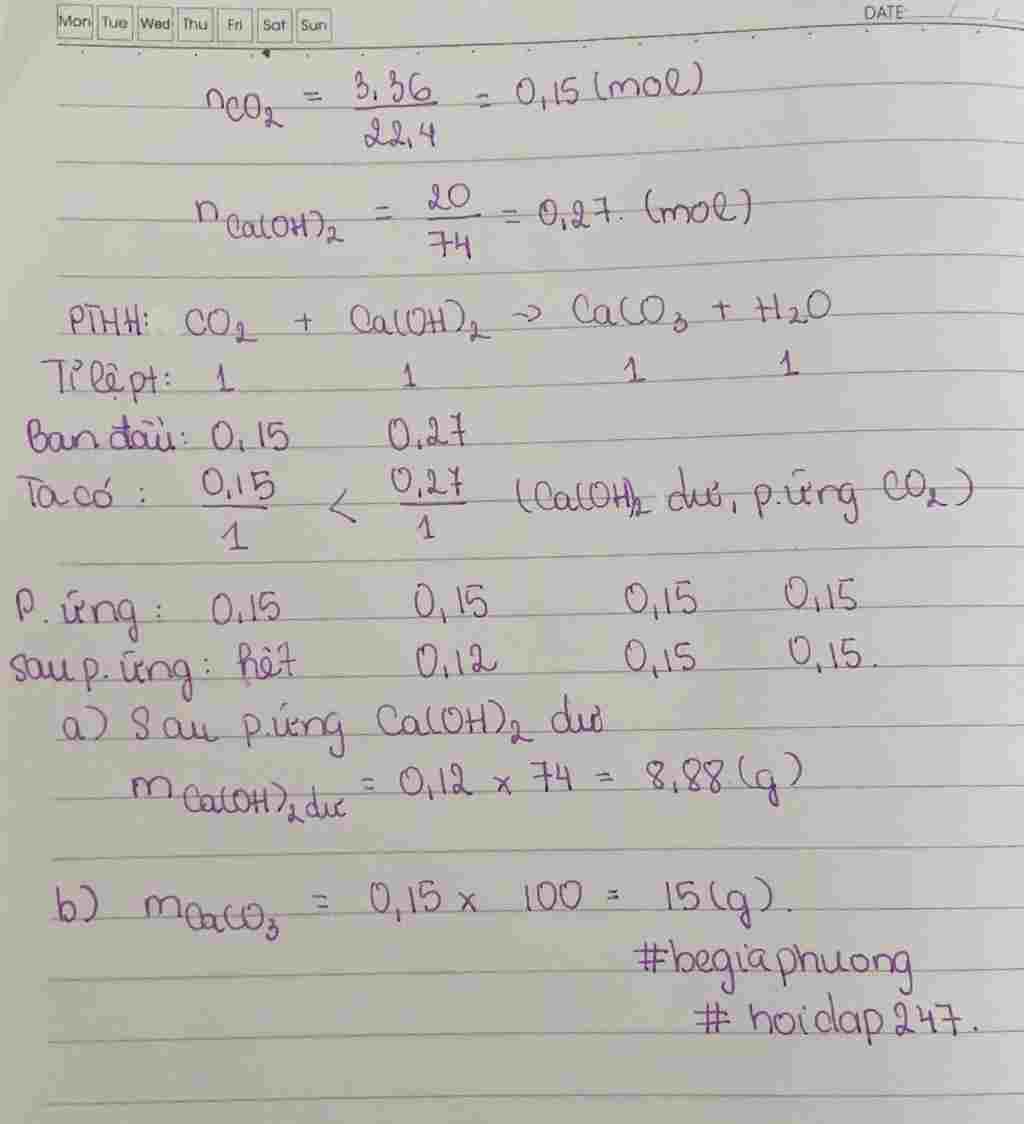 Mon Tue Wed Thu Fri Sat Sun DATE / /
nCO₂ = 3,36/22,4 = 0,15 (mol)
nCa(OH)₂ = 20/74 = 0,27. (mol)
PTHH: CO₂ + Ca(OH)₂ → CaCO₃ + H₂O
Tỉ lệ pt: 1 1 1 1
Ban đầu: 0,15 0,27
Ta có: 0,15/1 < 0,27/1 (Ca(OH)₂ dư, p.ứng CO₂)
P. ứng: 0,15 0,15 0,15 0,15
Sau p. ứng: hết 0,12 0,15 0,15.
a) Sau p.ứng Ca(OH)₂ dư
mCa(OH)₂ dư = 0,12 × 74 = 8,88 (g)
b) mCaCO₃ = 0,15 × 100 = 15 (g).
#begiaphuong
# hoidap247.